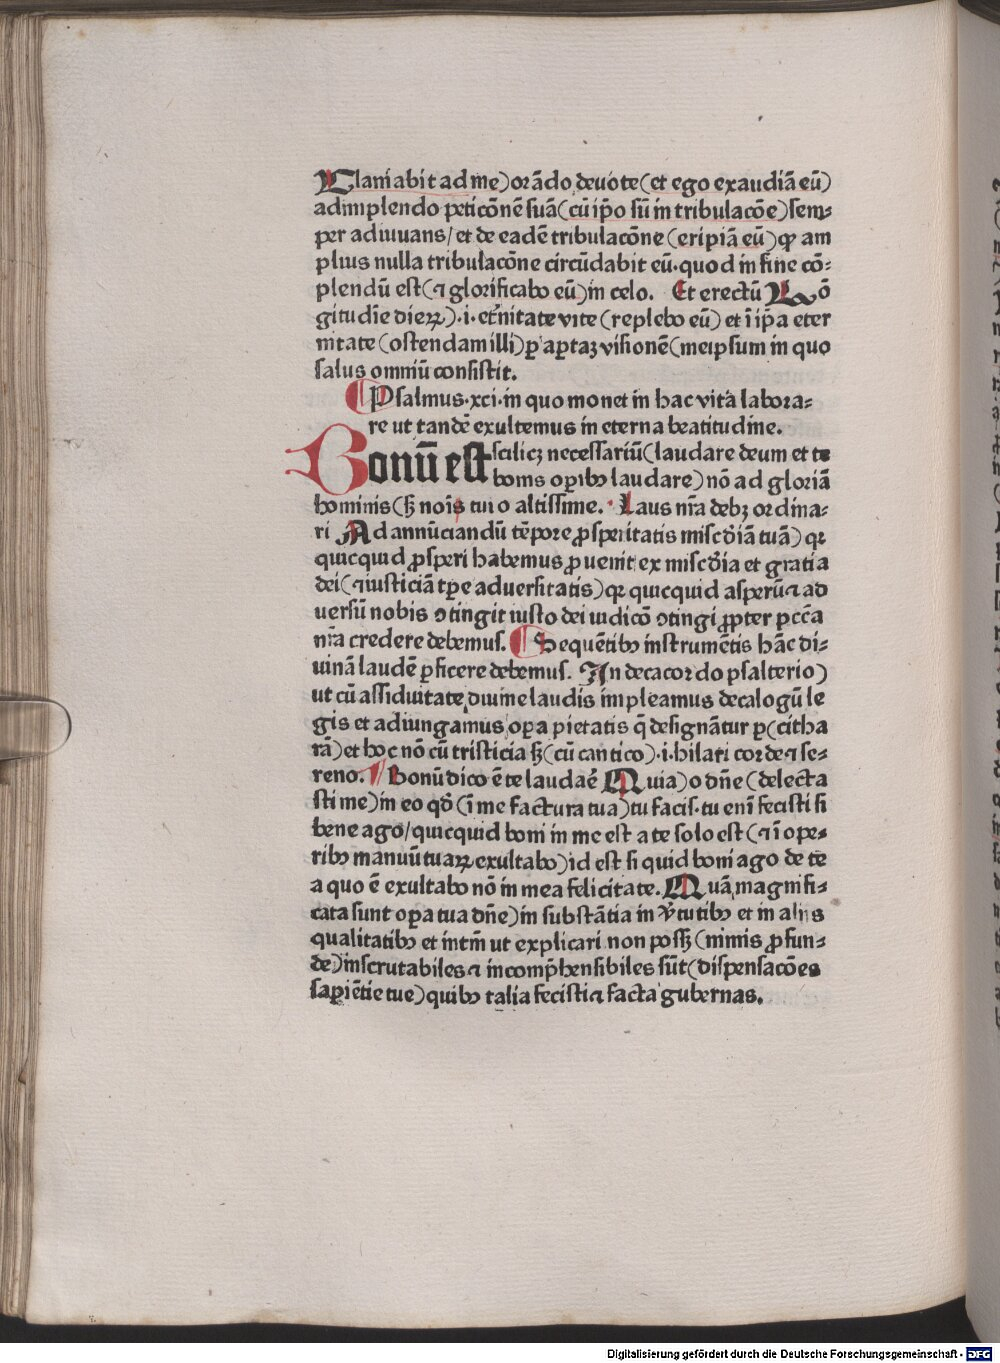 Clamabit ad me) orādo deuote (et ego exaudiā eū)
adimplendo peticōnē suā (cū ip̄o sū in tribulacōe) sem⸗
per adiuuans / et de eadē tribulacōne (eripiā eū) qꝛ am
plius nulla tribulacōne circūdabit eū. quod in fine cō⸗
plendū est (⁊ glorificabo eū) in celo. Et erectū Lō
gitudīe dieꝝ) .i. et̄nitate vite (replebo eū) et ī ip̄a eter
nitate (ostendam illi) ꝑ aꝑtaꝫ visionē (meip̄sum in quo
salus omniū consistit.
Psalmus .xci. in quo monet in hac vita labora⸗
re ut tandē exultemus in eterna beatitudine.
Bonū est scilicꝫ necessariū (laudare deum et te
bonis oꝑibꝰ laudare) nō ad gloriā
hominis (sꝫ noīs tui o altissime. Laus nr̄a debꝫ ordina⸗
ri Ad annūciandū tēpore ꝓsperitatis misc̄diā tuā) qꝛ
quicquid ꝓsperi habemus ꝓuenit ex misc̄dia et gratia
dei (⁊ iusticiā tꝑe aduersitatis) qꝛ quicquid asperū ⁊ ad
uersū nobis ↄtingit iusto dei iudicō ↄtingi ꝓpter pcc̄a
nr̄a credere debemus. Sequētibꝰ instrumētis hāc di⸗
uinā laudē ꝑficere debemus. In decacordo psalterio)
ut cū assiduitate diuine laudis impleamus decalogū le
gis et adiungamus oꝑa pietatis q̄ designātur ꝑ (citha
rā) et hoc nō cū tristicia sꝫ (cū cantico) .i. hilari corde ⁊ se⸗
reno. Bonū dico ē te laudaē Quia) o dn̄e (delecta
sti me) in eo qd̄ (ī me factura tua) tu facis. tu enī fecisti si
bene ago / quicquid boni in me est a te solo est (⁊ ī ope⸗
ribꝰ manuū tuaꝝ exultabo) id est si quid boni ago de te
a quo ē exultabo nō in mea felicitate. Quā magnifi⸗
cata sunt oꝑa tua dn̄e) in substātia in v̄tutibꝰ et in aliis
qualitatibꝰ et intm̄ ut explicari non possꝫ (nimis ꝓfun⸗
de) inscrutabiles ⁊ incomp̄hensibiles sūt (dispensacōes
sapiētie tue) quibꝰ talia fecisti ⁊ facta gubernas.
Digitalisierung gefördert durch die Deutsche Forschungsgemeinschaft - DFG